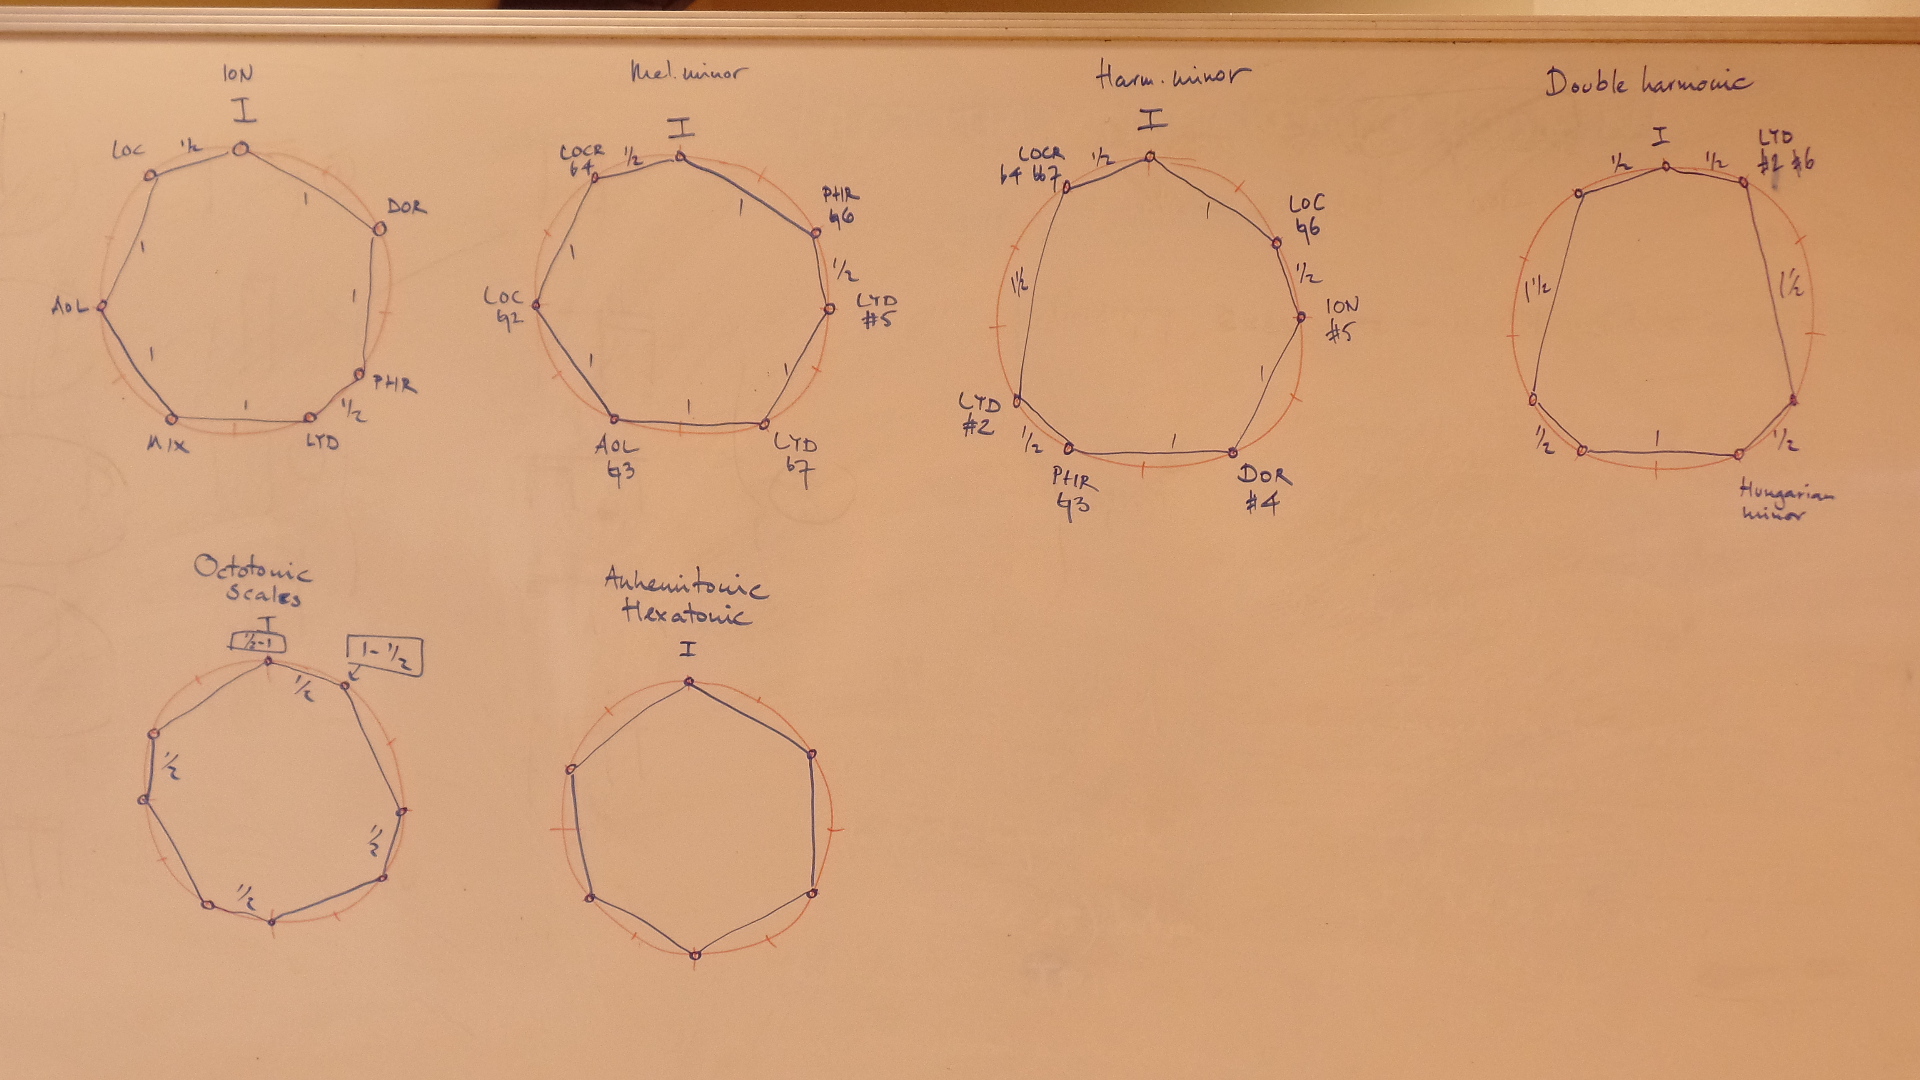 ION
I
LOC
½
1
DOR
1
1
AOL
1
PHR
½
1
MIX
LYD
Mel. minor
I
LOCR
♭4
½
1
PHR
♮6
½
1
LOC
♮2
LYD
#5
1
1
1
AOL
♮3
LYD
♭7
Harm. minor
I
LOCR
♭4 ♭♭7
½
1
LOC
♮6
½
1½
ION
#5
1
LYD
#2
½
1
PHR
♮3
DOR
#4
Double harmonic
I
LYD
#2 #6
½
½
1½
1½
½
1
½
Hungarian
minor
Octotonic
Scales
I
½-1
1-½
½
½
½
½
Anhemitonic
Hexatonic
I